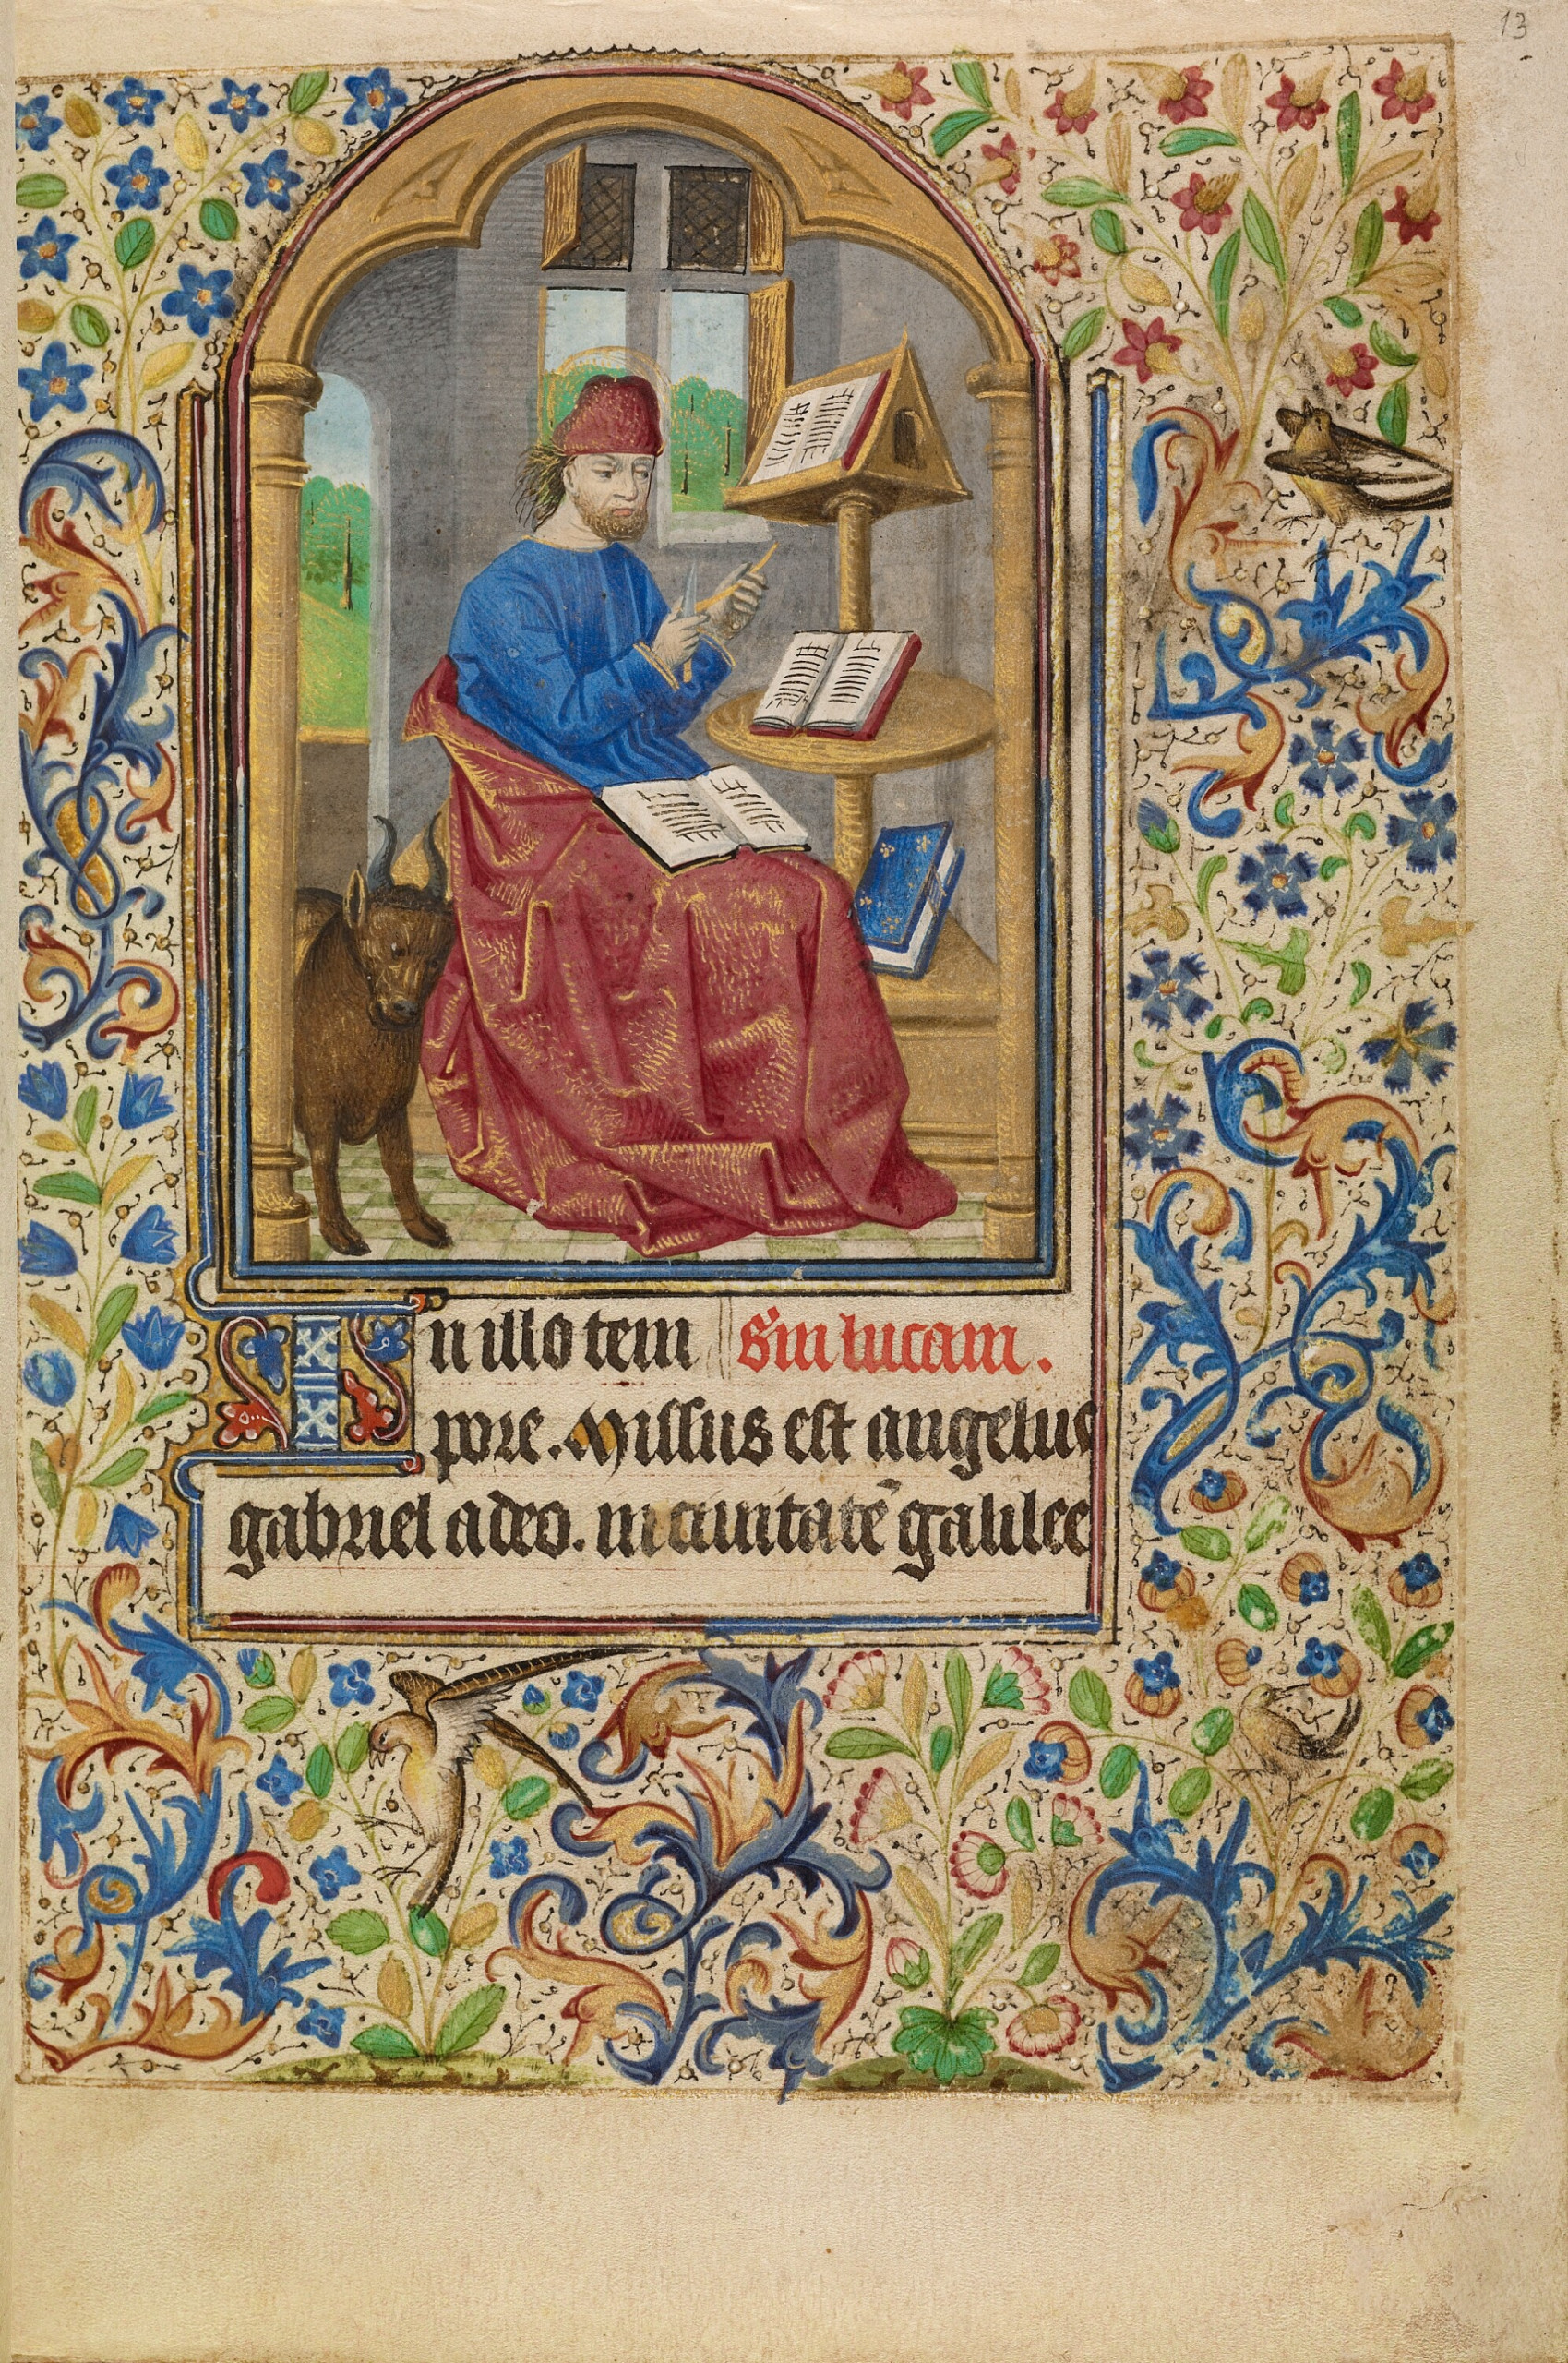 13
In illo tem
S'm lucam.
pore. Missus est angelus
gabriel a deo. in ciuitatē galilee